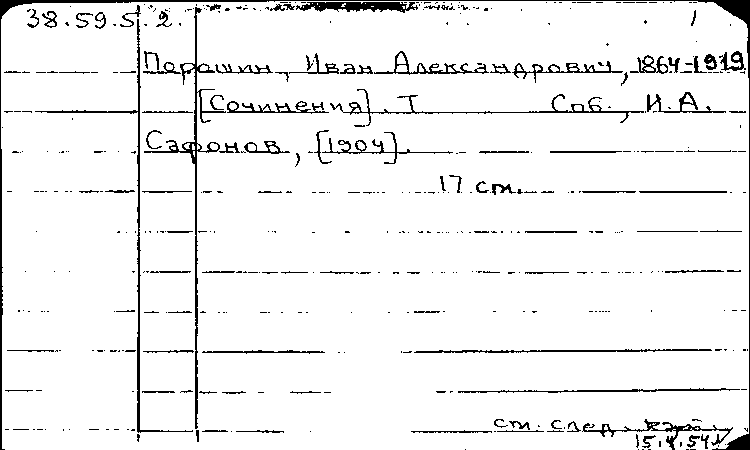 38.59.5.2. 1
Порошин, Иван Александрович, 1864-1919
[Сочинения]. Т Спб., И.А.
Сафонов, [1904].
17 cm.
см. след.
15.4.54